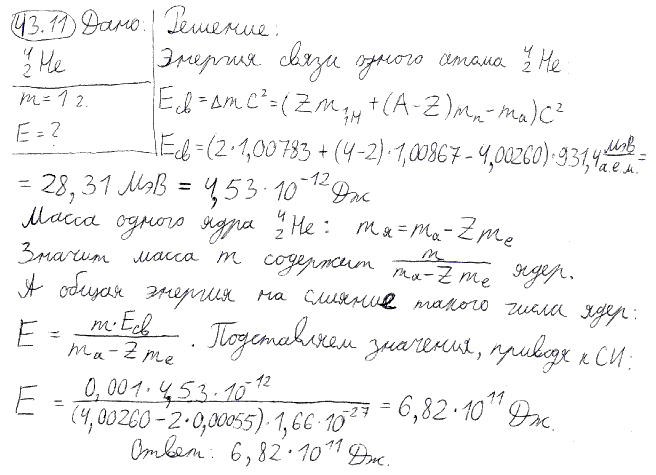 43.11 Дано: Решение:
⁴₂He Энергия связи одного атома ⁴₂He:
m = 1 г. Eсв = Δmc² = (Zm₁H + (A-Z)mₙ - mₐ)c²
E = ? Eсв = (2·1,00783 + (4-2)·1,00867 - 4,00260)·931,4 МэВ/а.е.м. =
= 28,31 МэВ = 4,53·10⁻¹² Дж
Масса одного ядра ⁴₂He: mя = mₐ - Zmₑ
Значит масса m содержит m/(mₐ - Zmₑ) ядер.
А общая энергия на слияние такого числа ядер:
E = m·Eсв/(mₐ - Zmₑ). Подставляем значения, приводя к СИ:
E = 0,001·4,53·10⁻¹²/((4,00260 - 2·0,00055)·1,66·10⁻²⁷) = 6,82·10¹¹ Дж.
Ответ: 6,82·10¹¹ Дж.